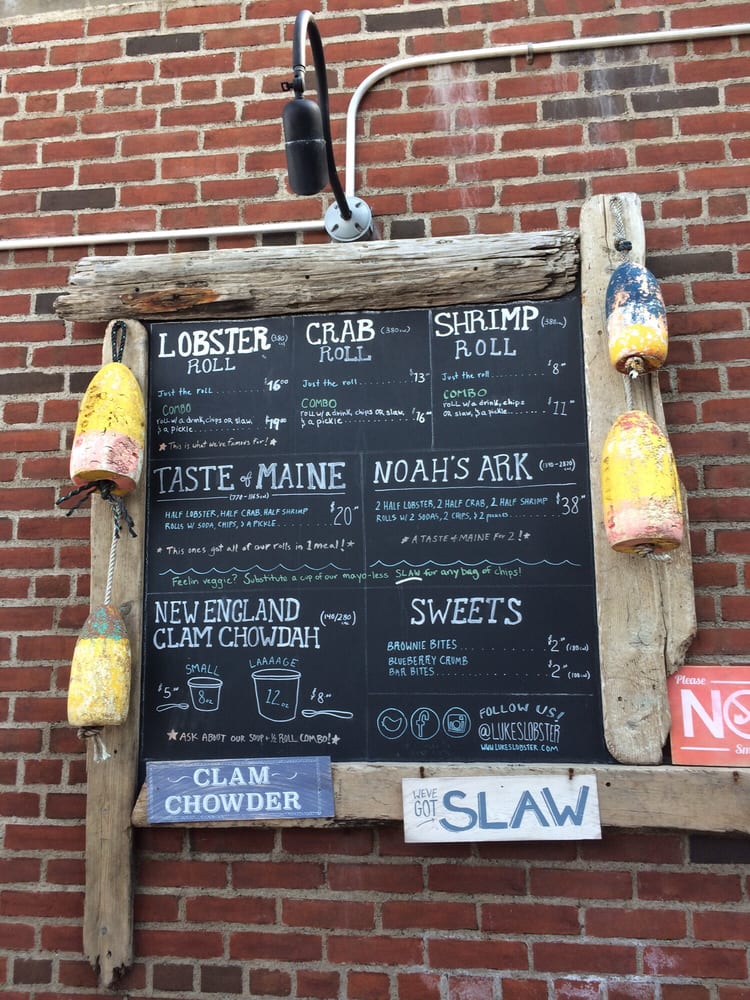 LOBSTER (380)
ROLL
Just the roll $16.00
COMBO
roll w/ a drink, chips OR slaw,
& a pickle $19.00
★ This is what we're famous for! ★
CRAB (380 cal)
ROLL
Just the roll $13
COMBO
roll w/ a drink, chips OR slaw,
& a pickle $16
SHRIMP (380 cal)
ROLL
Just the roll $8
COMBO
roll w/ a drink, chips
OR slaw, & a pickle $11
TASTE of MAINE
HALF LOBSTER, HALF CRAB, HALF SHRIMP
ROLLS W/ SODA, CHIPS, & A PICKLE $20
* This ones got all of our rolls in 1 meal! *
NOAH'S ARK
2 HALF LOBSTER, 2 HALF CRAB, 2 HALF SHRIMP
ROLLS W/ 2 SODAS, 2 CHIPS, & 2 pickles $38
* A TASTE of MAINE For 2! *
Feelin veggie? Substitute a cup of our mayo-less SLAW for any bag of chips!
NEW ENGLAND
CLAM CHOWDAH (140/280 cal)
SMALL
$5
8 oz
LAAAAGE
12 oz
$8
★ ASK ABOUT OUR SOUP + ½ ROLL COMBO! ★
SWEETS
BROWNIE BITES $2
BLUEBERRY CRUMB
BAR BITES $2
FOLLOW US!
@LUKESLOBSTER
WWW.LUKESLOBSTER.COM
CLAM
CHOWDER
WE'VE
GOT
SLAW
Please
NO